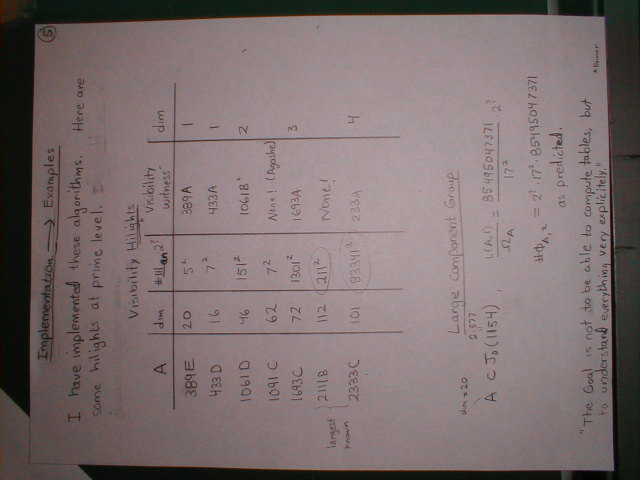 ⑤
Implementation → Examples
I have implemented these algorithms. Here are
some hilights at prime level.
Visibility Hilights
A dim #Ш an 2? Visibility witness dim
389E 20 5² 389A 1
433D 16 7² 433A 1
1061D 46 151² 1061B 2
1091C 62 7² None! (Agashe)
1693C 72 1301² 1693A 3
largest known { 2111B 112 211² None!
2333C 101 83341² 233A 4
Large Component Group
dim → 20 2·577
A ⊂ J₀(1154) L(A,1)/Ω_A = 85495047371/17² 2?
#Φ_A,2 = 2? · 17² · 85495047371
as predicted.
"The Goal is not to be able to compute tables, but
to understand everything very explicitly."